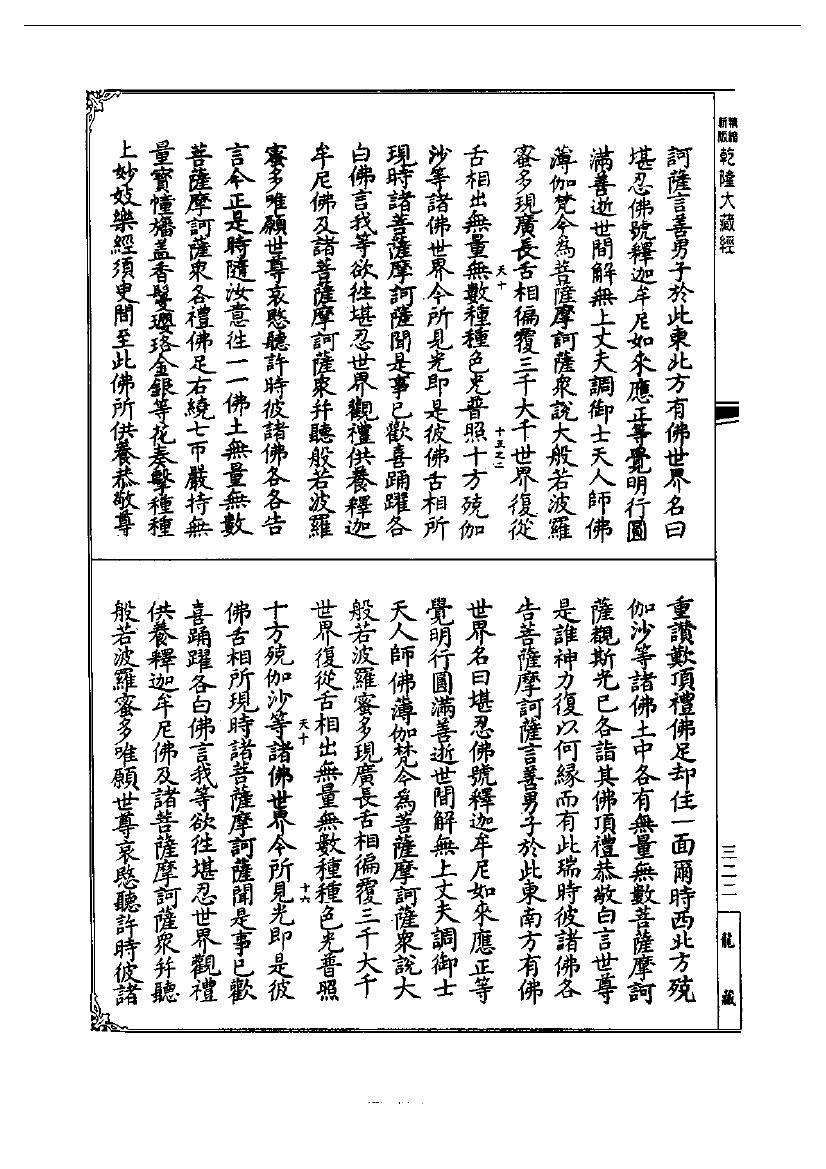 精縮新版
乾隆大藏經
訶薩言善男子於此東北方有佛世界名曰
堪忍佛號釋迦牟尼如來應正等覺明行圓
滿善逝世間解無上丈夫調御士天人師佛
薄伽梵今為菩薩摩訶薩衆說大般若波羅
蜜多現廣長舌相徧覆三千大千世界復從
十五之二
天十
舌相出無量無數種種色光普照十方殑伽
沙等諸佛世界今所見光即是彼佛舌相所
現時諸菩薩摩訶薩聞是事已歡喜踊躍各
白佛言我等欲往堪忍世界觀禮供養釋迦
牟尼佛及諸菩薩摩訶薩衆幷聽般若波羅
蜜多唯願世尊哀愍聽許時彼諸佛各各告
言今正是時隨汝意往一一佛土無量無數
菩薩摩訶薩衆各禮佛足右繞七帀嚴持無
量寶幢旛盖香鬘瓔珞金銀等花奏擊種種
上妙妓樂經須臾間至此佛所供養恭敬尊
重讚歎頂禮佛足却住一面爾時西北方殑
伽沙等諸佛土中各有無量無數菩薩摩訶
薩觀斯光已各詣其佛頂禮恭敬白言世尊
是誰神力復以何緣而有此瑞時彼諸佛各
告菩薩摩訶薩言善男子於此東南方有佛
世界名曰堪忍佛號釋迦牟尼如來應正等
覺明行圓滿善逝世間解無上丈夫調御士
天人師佛薄伽梵今為菩薩摩訶薩衆說大
般若波羅蜜多現廣長舌相徧覆三千大千
世界復從舌相出無量無數種種色光普照
天十
十六
十方殑伽沙等諸佛世界今所見光即是彼
佛舌相所現時諸菩薩摩訶薩聞是事已歡
喜踊躍各白佛言我等欲往堪忍世界觀禮
供養釋迦牟尼佛及諸菩薩摩訶薩衆幷聽
般若波羅蜜多唯願世尊哀愍聽許時彼諸
三二二
龍藏